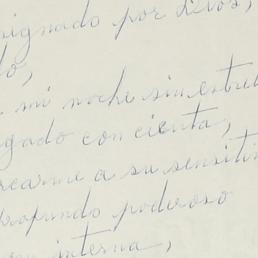 signado por Dios,
do,
mi noche sin estrel
gado con cienta,
rcarme a su sensitiv
profundo poderoso
interna,